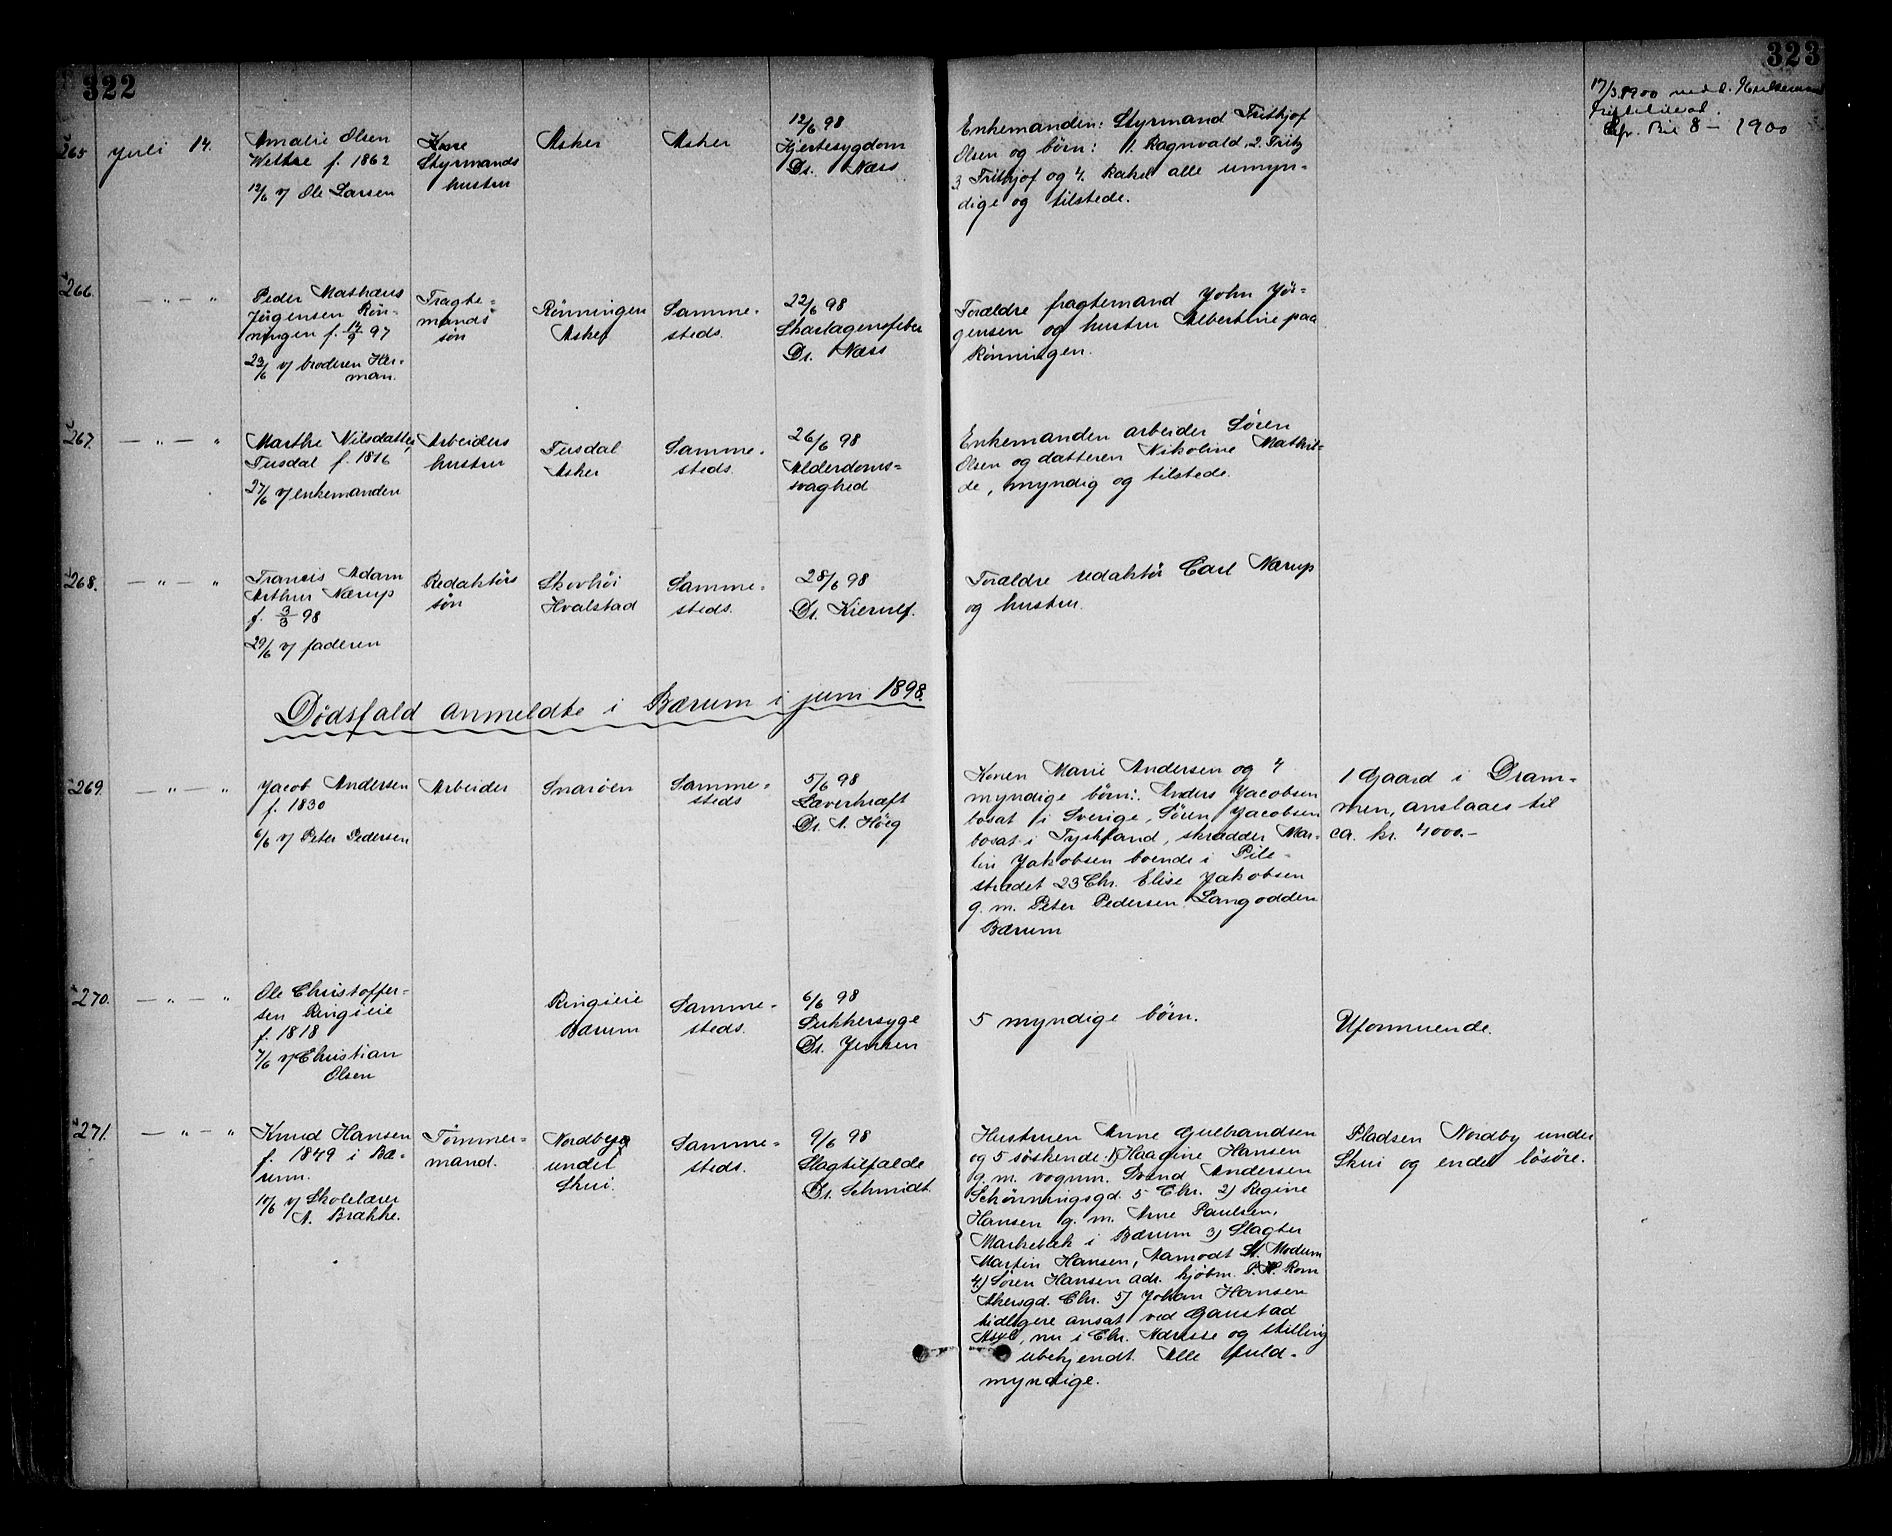 322
323
17/3 1900 medd.
Cfr. Bil 8 – 1900
265 Juli 14.
Amalie Olsen
Wettre f. 1862
12/6 v/ Ole Larsen
Styrmands
hustru
Asker
Asker
12/6 98
Hjertesygdom
Dr. Næss
Enkemanden: Styrmand Frithjof
Olsen og børn: 1. Ragnvald, 2. Fritz
3 Frithjof og 4. Rakel alle umyn-
dige og tilstede.
266. — " — "
Peder Mathæus
Jørgensen Røn-
ningen f. 14/9 97
23/6 v/ broderen Her-
man.
Fragte-
mands
søn
Rønningen
Asker
Samme-
steds.
22/6 98
Skarlagensfeber
Dr. Næss
Forældre fragtemand John Jør-
gensen og hustru Albertine paa
Rønningen.
267. — " — "
Marthe Nilsdatter
Tusdal f. 1816
27/6 v/ enkemanden
Arbeiders
hustru
Tusdal
Asker
Samme-
steds.
26/6 98
Alderdoms-
svaghed
Enkemanden arbeider Søren
Olsen og datteren Nikoline Mathil-
de, myndig og tilstede.
268. — " — "
Francis Adam
Arthur Nærup
f. 3/3 98
29/6 v/ faderen
Redaktørs
søn
Skovhøi
Hvalstad
Samme-
steds.
28/6 98
Dr. Kierulf.
Forældre redaktør Carl Nærup
og hustru.
Dødsfald anmeldte i Bærum i juni 1898.
269. — " — "
Jacob Andersen
f. 1830
6/6 v/ Peter Pedersen
Arbeider
Snarøen
Samme-
steds
5/6 98
Leverkræft
Dr. A. Høeg
Konen Marie Andersen og 4
myndige børn: Anders Jacobsen
bosat i Sverige, Søren Jacobsen
bosat i Tyskland, skrædder Mar-
tin Jakobsen boende i Pile-
strædet 23 Chr. Elise Jakobsen
g. m. Peter Pedersen Langodden
Bærum
1 Gaard i Dram-
men, anslaaes til
ca. kr. 4000.-
270. — " — "
Ole Christoffer-
sen Ringieie
f. 1818
7/6 v/ Christian
Olsen
Ringieie
Bærum
Samme-
steds.
6/6 98
Sukkersyge
Dr. Jensen
5 myndige børn.
Uformuende.
271. — " — "
Knud Hansen
f. 1849 i Bæ-
rum.
10/6 v/ Skolelærer
A. Brække.
Tømmer-
mand.
Nordby
under
Skui.
Samme-
steds.
9/6 98
Slagtilfælde
Dr. Schmidt.
Hustruen Anne Gulbrandsen
og 5 søskende: 1) Haagine Hansen
g. m. vognm. Svend Andersen
Schønningsgd. 5 Chr. 2) Regine
Hansen g. m. Arne Paulsen,
Markebæk i Bærum 3) Slagter
Martin Hansen, Aamodt St. Modum
4) Søren Hansen adr. kjøbm. P. H. Rom
Akersgd. Chr. 5) Johan Hansen
tidligere ansat ved Gaustad
Asyl, nu i Chr. Adresse og stilling
ubekjendt. Alle fuld-
myndige.
Pladsen Nordby under
Skui og endel løsøre.